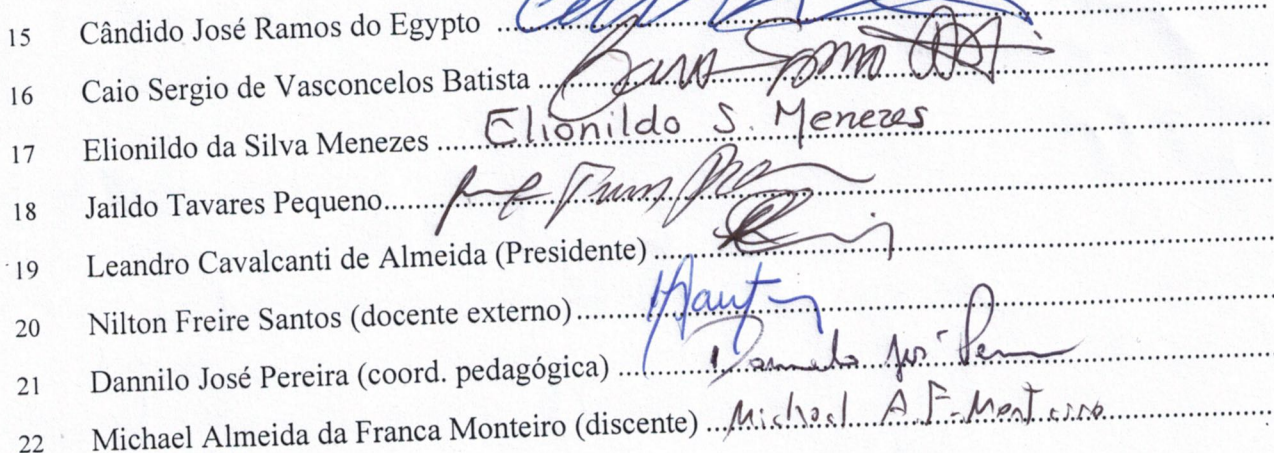 15 Cândido José Ramos do Egypto
16 Caio Sergio de Vasconcelos Batista
17 Elionildo da Silva Menezes Elionildo S. Menezes
18 Jaildo Tavares Pequeno
19 Leandro Cavalcanti de Almeida (Presidente)
20 Nilton Freire Santos (docente externo)
21 Dannilo José Pereira (coord. pedagógica) Dannilo José Pereira
22 Michael Almeida da Franca Monteiro (discente) Michael A. F. Monteiro